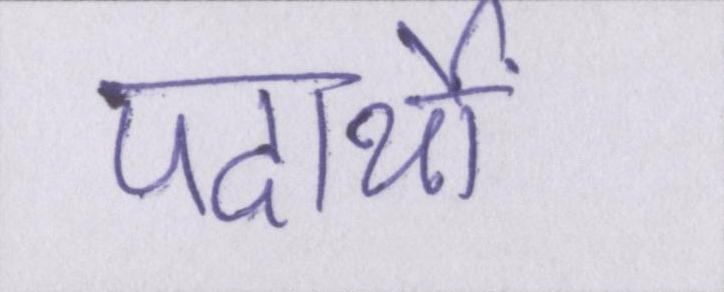 पदार्थों